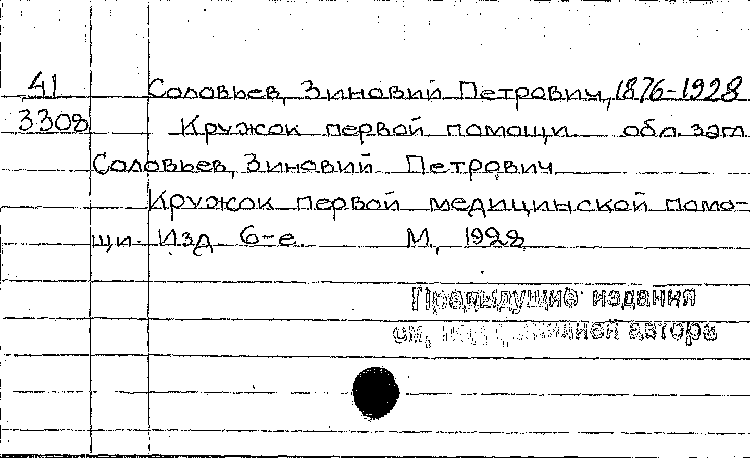 41 Соловьев, Зиновий Петрович, 1876-1928
3308 Кружок первой помощи обл. загл
Соловьев, Зиновий Петрович
Кружок первой медицинской помо-
щи. Изд 6-е. М, 1928
Предыдущие издания
см, автора